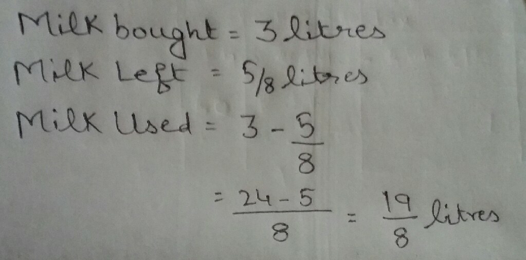 Milk bought = 3 litres
Milk Left = 5/8 litres
Milk Used = 3 - 5/8
= 24-5/8 = 19/8 litres